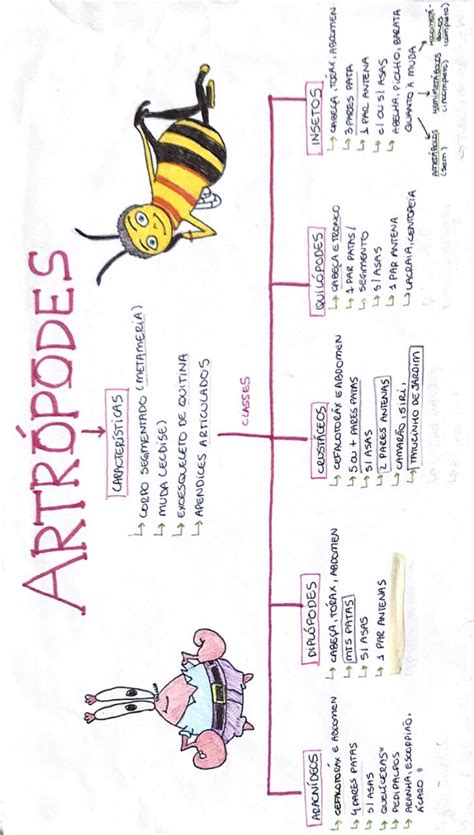 ARTRÓPODES
CARACTERÍSTICAS
CORPO SEGMENTADO (METAMERIA)
MUDA (ECDISE)
EXOESQUELETO DE QUITINA
APENDICES ARTICULADOS
CLASSES
ARACNÍDEOS
CEFALOTORÁX E ABDOMEN
4 PARES PATAS
S/ ASAS
QUELÍCERAS
PEDIPALPOS
ARANHA, ESCORPIÃO,
ÁCARO
DIPLÓPODES
CABEÇA, TÓRAX, ABDOMEN
MTS PATAS
S/ ASAS
1 PAR ANTENAS
CRUSTÁCEOS
CEFALOTORÁX E ABDOMEN
5 OU + PARES PATAS
S/ ASAS
2 PARES ANTENAS
CAMARÃO, SIRI,
TATUZINHO DE JARDIM
QUILÓPODES
CABEÇA E TRONCO
1 PAR PATAS/
SEGMENTO
S/ ASAS
1 PAR ANTENA
LACRAIA, CENTOPEIA
INSETOS
CABEÇA, TÓRAX, ABDOMEN
3 PARES PATA
1 PAR ANTENA
C/ OU S/ ASAS
ABELHA, PIOLHO, BARATA
QUANTO À MUDA
AMETÁBOLOS
(SEM)
HEMIMETÁBOLOS
(INCOMPLETO)
HOLOMETÁ-
BOLOS
(COMPLETO)